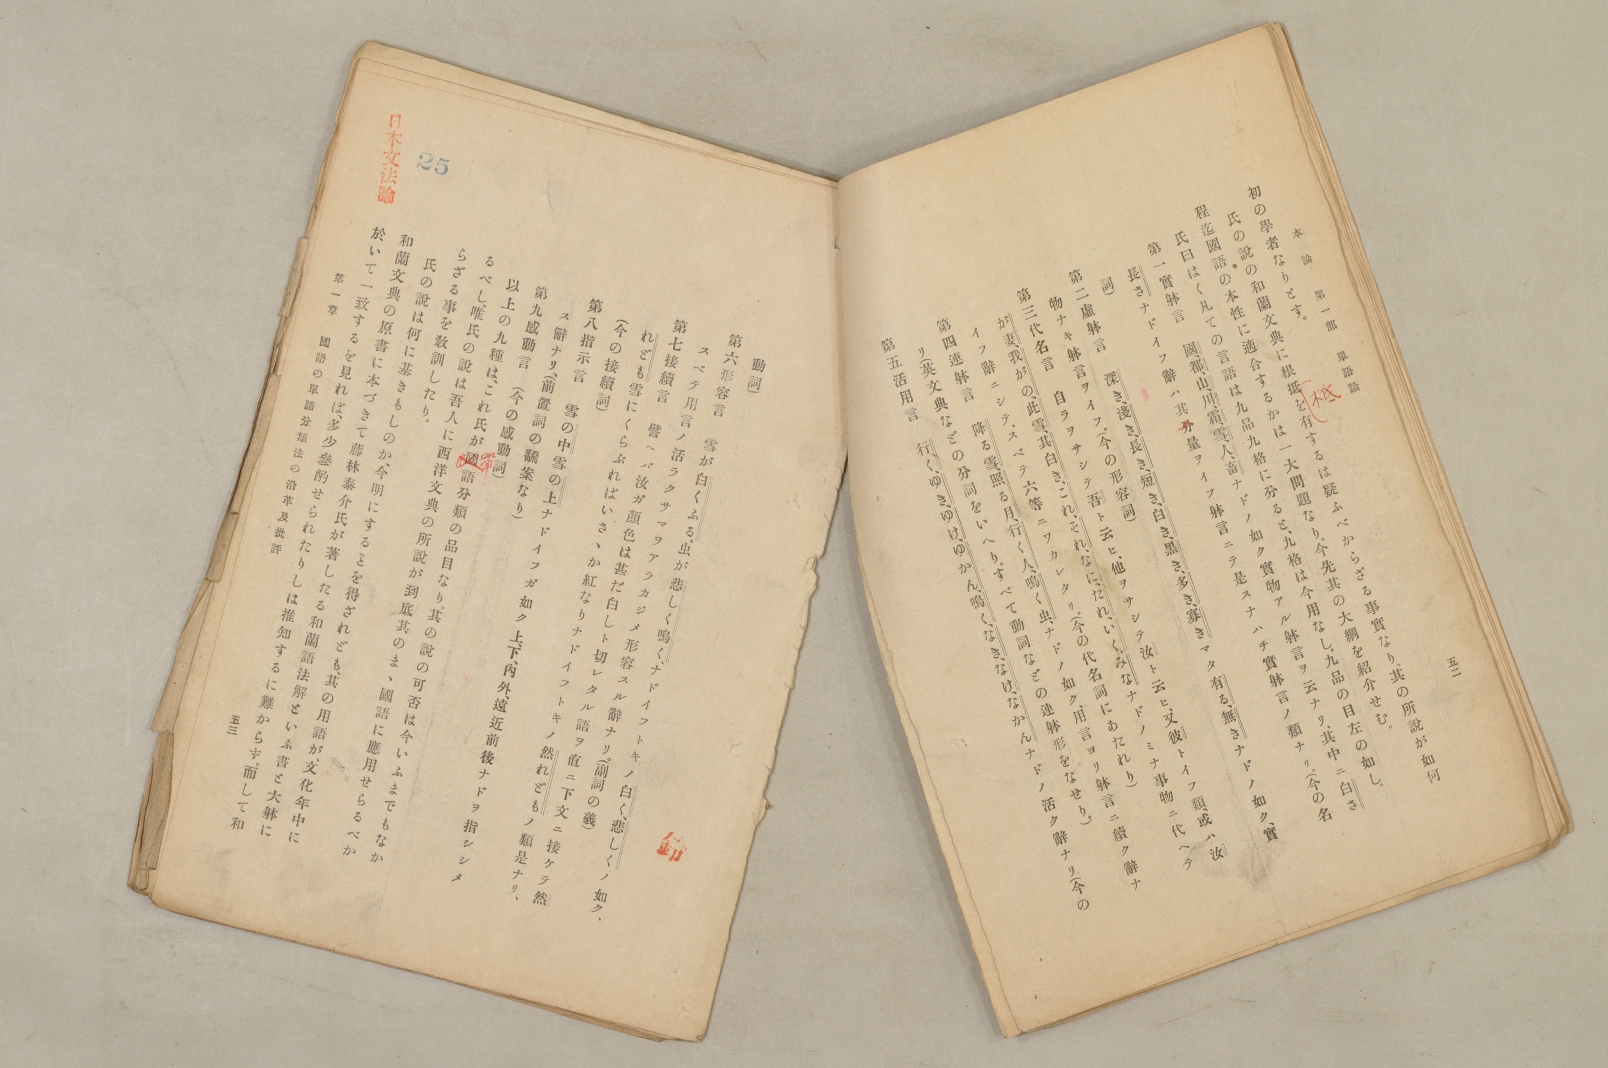 本論　第一部　單語論
五二
初の學者なりとす。
氏の說の和蘭文典に根抵を有するは疑ふべからざる事實なり。其の所說が如何
柢
程迄國語の本性に適合するかは一大問題なり。今先其の大綱を紹介せむ。
氏曰はく凡ての言語は九品九格に分ると、九格は今用なし。九品の目左の如し。
第一實躰言　國、都、山、川、霜、雪、人、畜ナドノ如ク實物アル躰言ヲ云ナリ、其中ニ白さ
長さナドイフ辭ハ其分量ヲイフ躰言ニテ是スナハチ實躰言ノ類ナリ。(今の名
詞)
第二虛躰言　深き、淺き、長き、短き、白き、黑き、多き、寡きマタ有る、無きナドノ如ク、實
物ナキ躰言ヲイフ。(今の形容詞)
第三代名言　自ラヲサシテ吾ト云ヒ、他ヲサシテ汝ト云ヒ、又彼トイフ類、或ハ汝
が妻、我がの、此雪、其白き、これ、それ、なに、だれ、いく、みなナドノミナ事物ニ代ヘラ
イフ辭ニシテ、スベテ六等ニワカレタリ。(今の代名詞にあたれり)
第四連躰言　降る雪、照る月、行く人、鳴く虫、ナドノ如ク、用言ヨリ躰言ニ續ク辭ナ
リ(英文典などの分詞をいへり。すべて動詞などの連躰形をなせり。)
第五活用言　行く、ゆき、ゆけ、ゆかん、鳴く、なき、なけ、なかんナドノ活ク辭ナリ(今の
動詞)
第六形容言　雪が白くふる、虫が悲しく鳴く、ナドイフトキノ白く、悲しくノ如ク、
スベテ用言ノ活ラクサマヲアラカジメ形容スル辭ナリ。(副詞の義)
第七接續言　譬ヘバ汝ガ顏色は甚だ白しト切レタル語ヲ直ニ下文ニ接ケテ然
れども雪にくらぶればいさゝか紅なりナドイフトキノ然れどもノ類是ナリ、
(今の接續詞)
第八指示言　雪の中雪の上ナドイフガ如ク上、下、內、外、遠近前後ナドヲ指シシメ
ス辭ナリ、前置詞の飜案なり)
第九感動言　(今の感動詞)
以上の九種は、これ氏が國語分類の品目なり。其の說の可否は今いふまでもなか
單
るべし。唯氏の說は吾人に西洋文典の所說が到底其のまゝ國語に應用せらるべか
らざる事を敎訓したり。
氏の說は何に基きもしのか、今明にすることを得ざれども、其の用語が、文化年中に
和蘭文典の原書に本づきて藤林泰介氏が著したる和蘭語法解といふ書と大躰に
於いて一致するを見れば、多少參酌せられたりしは推知するに難からず。而して和
第一章　國語の單語分類法の沿革及批評
五三
日本文法論
25